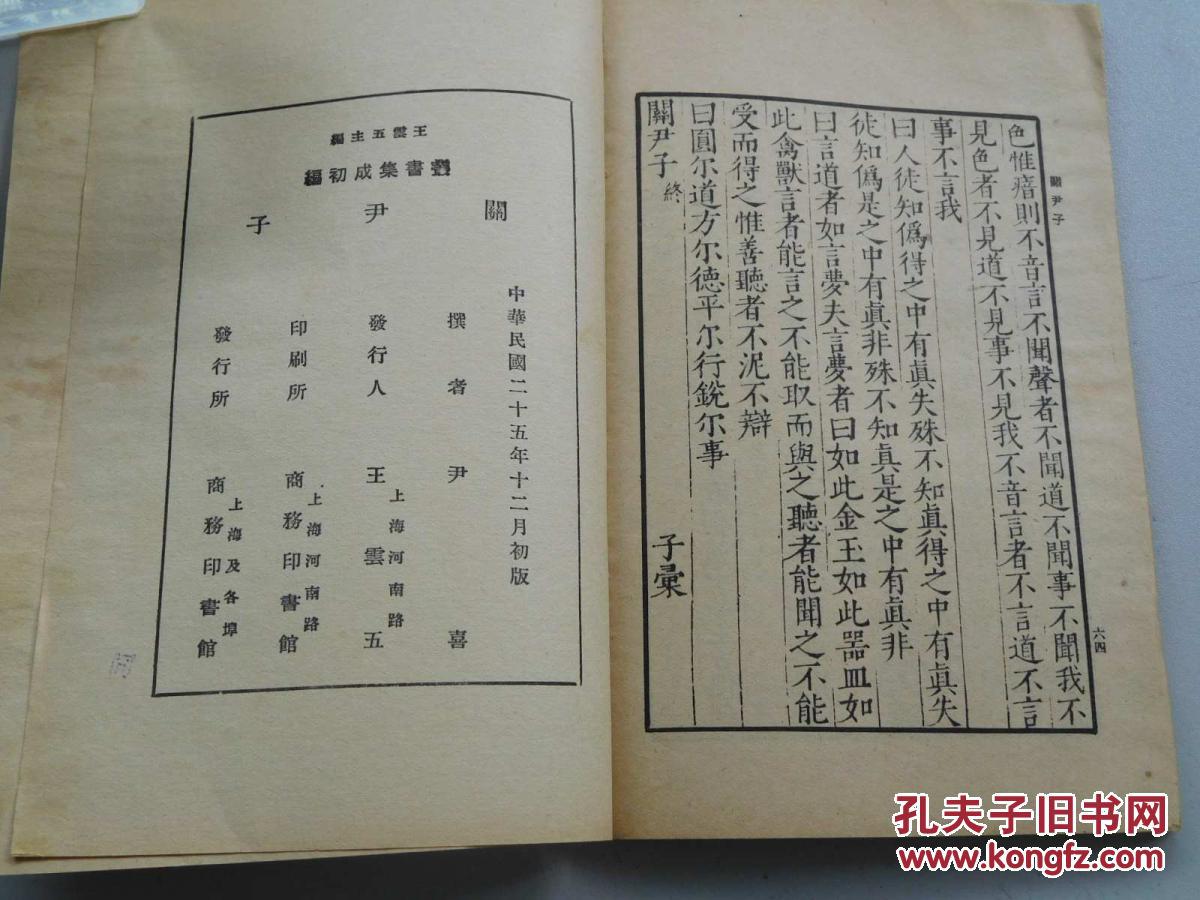 關尹子
六四
色惟瘖則不音言不聞聲者不聞道不聞事不聞我不
見色者不見道不見事不見我不音言者不言道不言
事不言我
曰人徒知僞得之中有眞失殊不知眞得之中有眞失
徒知僞是之中有眞非殊不知眞是之中有眞非
曰言道者如言夢夫言夢者曰如此金玉如此器皿如
此禽獸言者能言之不能取而與之聽者能聞之不能
受而得之惟善聽者不泥不辯
曰圓尔道方尔德平尔行銳尔事
關尹子 終
子彙
王雲五主編
叢書集成初編
關尹子
中華民國二十五年十二月初版
撰者 尹喜
發行人 王雲五
上海河南路
印刷所 商務印書館
上海河南路
發行所 商務印書館
上海及各埠
孔夫子旧书网
www.kongfz.com